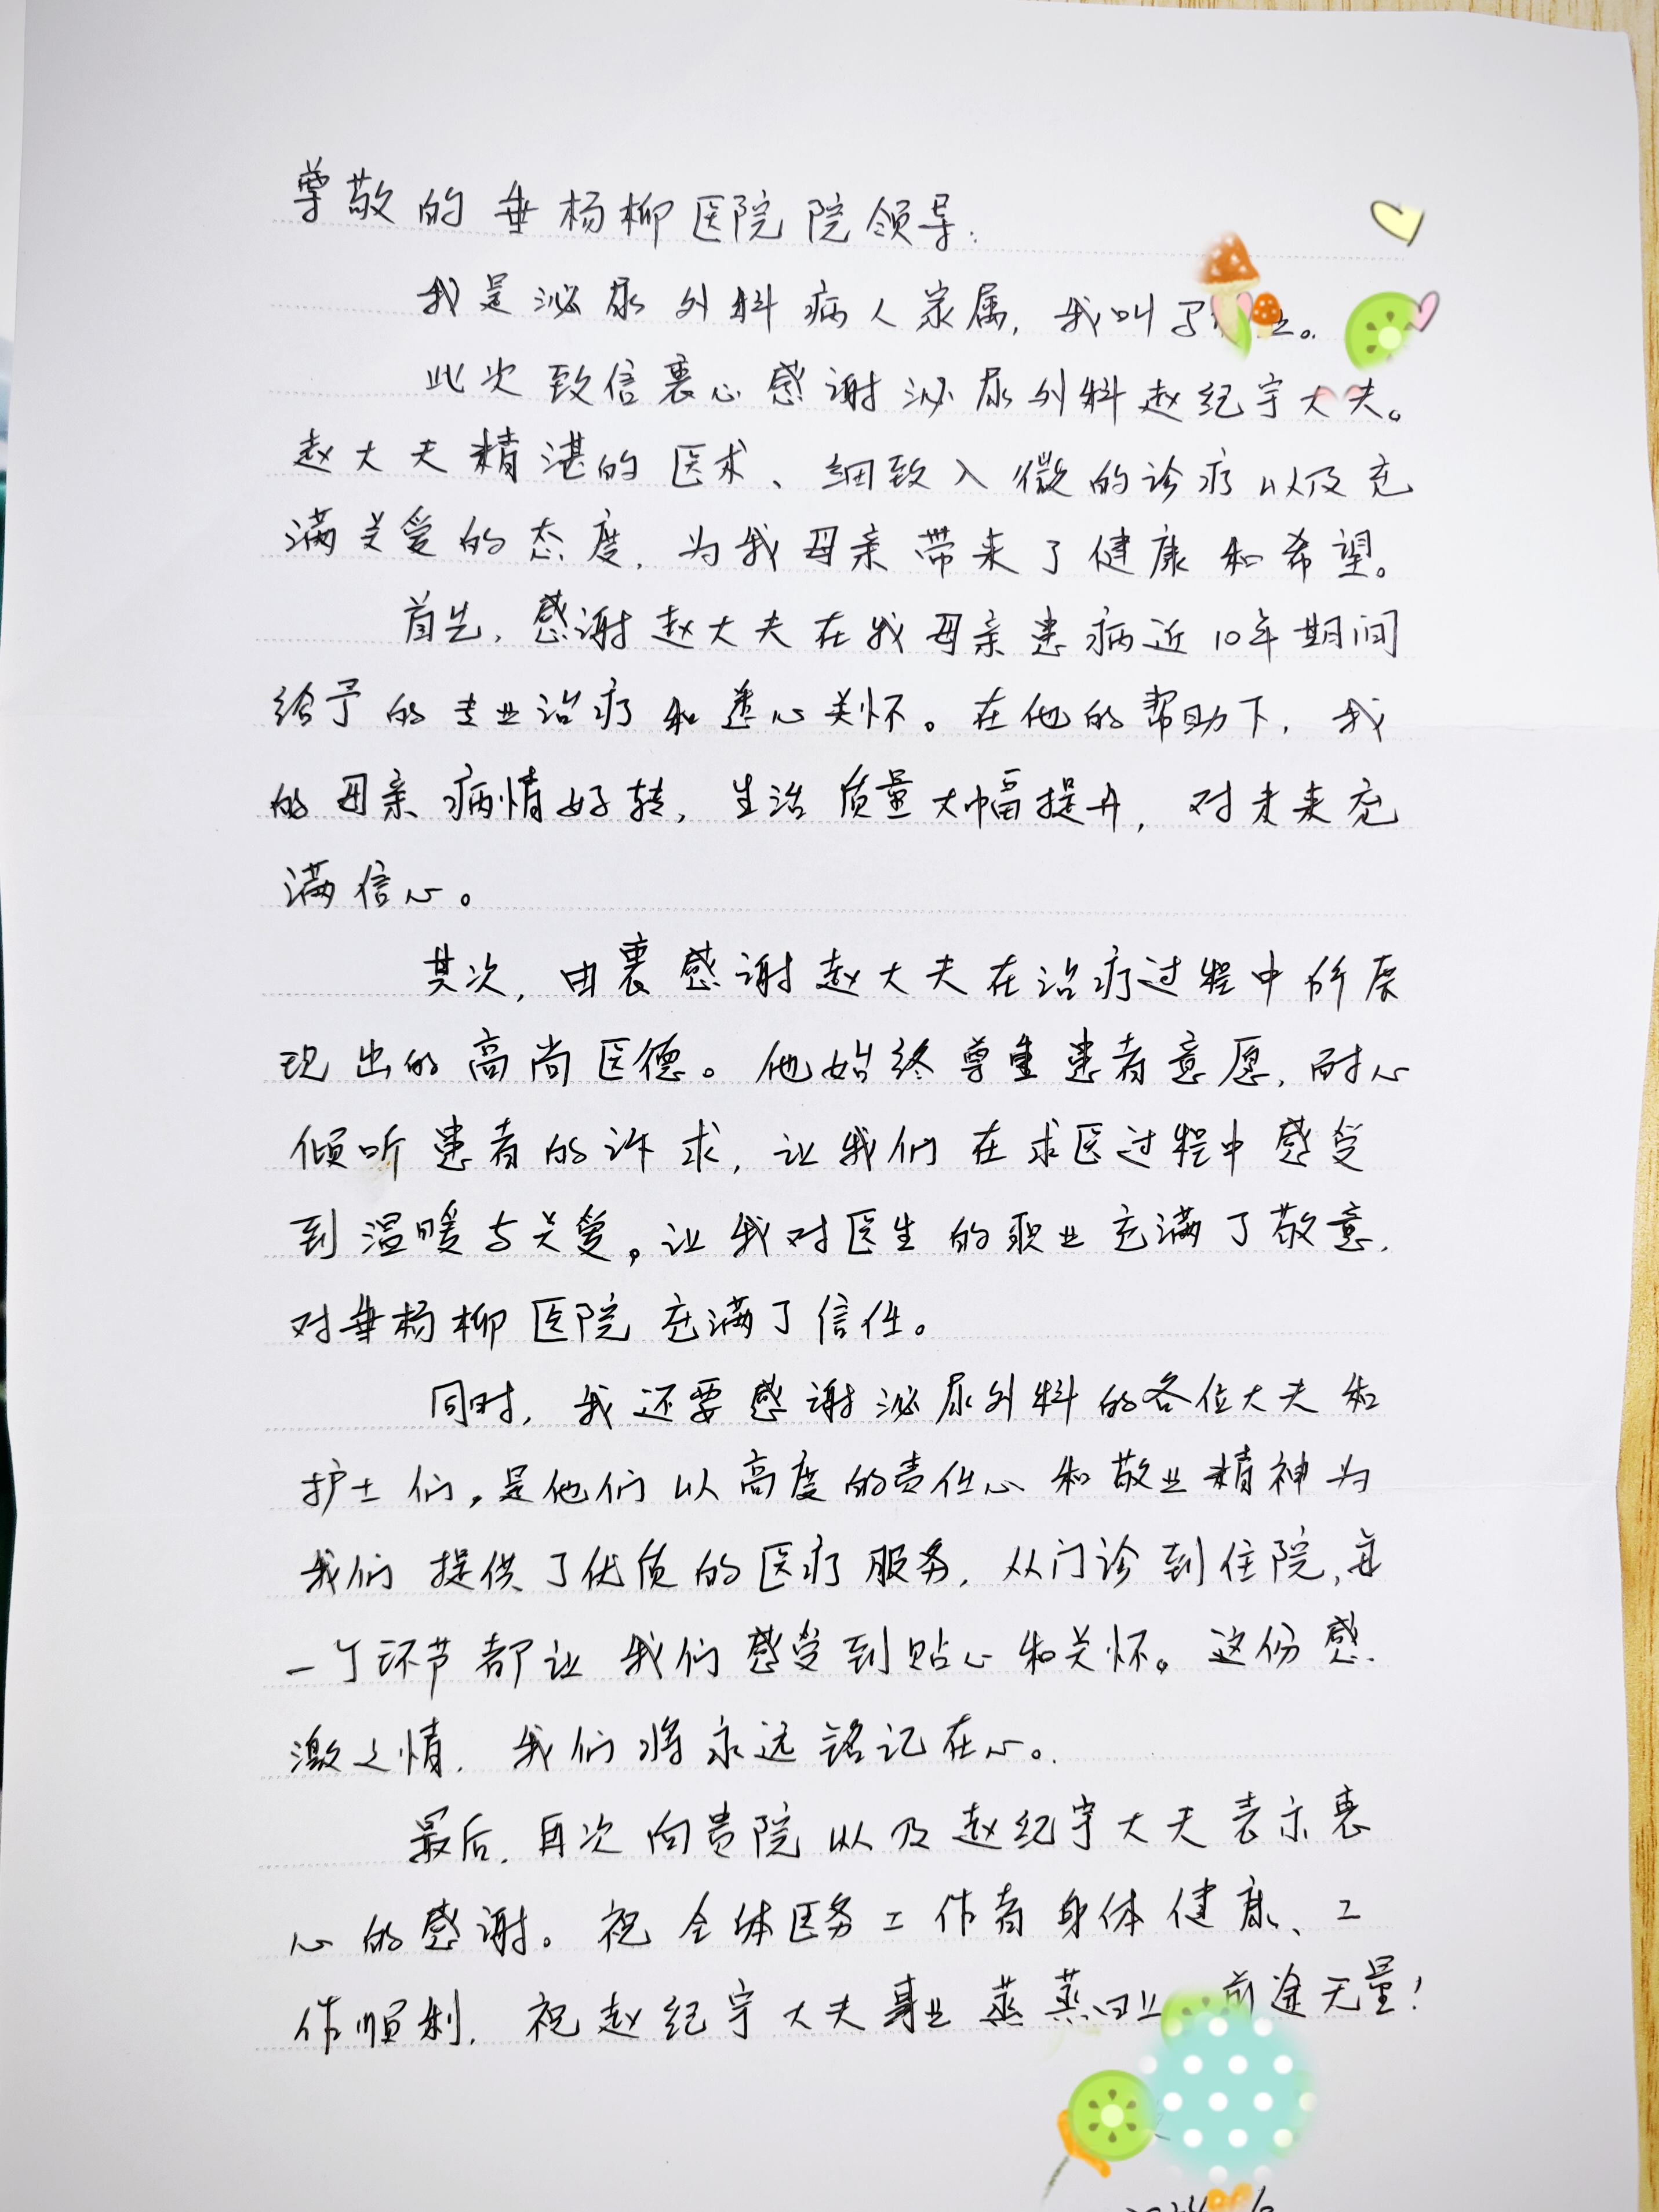 尊敬的垂杨柳医院院领导:
我是泌尿外科病人家属,我叫
此次致信衷心感谢泌尿外科赵纪宇大夫。
赵大夫精湛的医术、细致入微的诊疗以及充
满关爱的态度,为我母亲带来了健康和希望。
首先,感谢赵大夫在我母亲患病近10年期间
给予的专业治疗和悉心关怀。在他的帮助下,我
的母亲病情好转,生活质量大幅提升,对未来充
满信心。
其次,由衷感谢赵大夫在治疗过程中所展
现出的高尚医德。他始终尊重患者意愿,耐心
倾听患者的诉求,让我们在求医过程中感受
到温暖与关爱。让我对医生的职业充满了敬意,
对垂杨柳医院充满了信任。
同时,我还要感谢泌尿外科的各位大夫和
护士们,是他们以高度的责任心和敬业精神为
我们提供了优质的医疗服务,从门诊到住院,每
一个环节都让我们感受到贴心和关怀。这份感
激之情,我们将永远铭记在心。
最后,再次向贵院以及赵纪宇大夫表示衷
心的感谢。祝全体医务工作者身体健康、工
作顺利,祝赵纪宇大夫事业蒸蒸日上 前途无量!